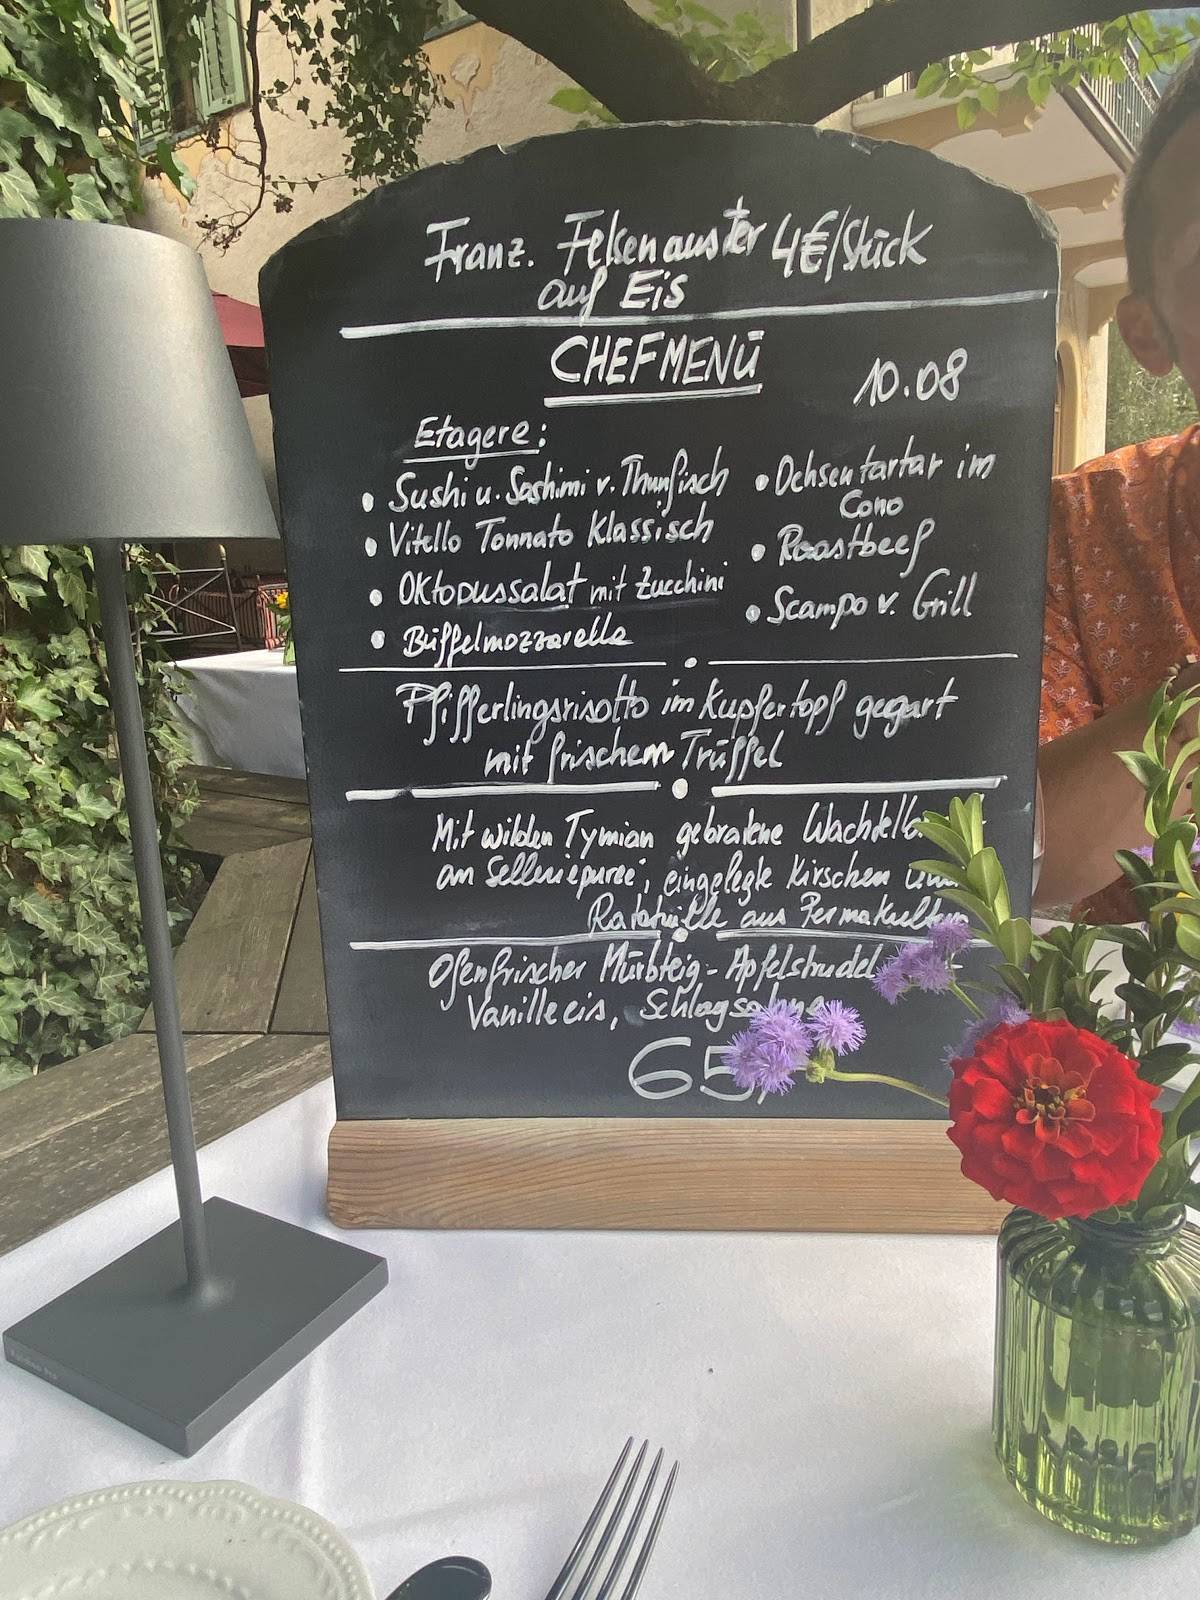 Franz. Felsenauster 4€/Stück
auf Eis
CHEFMENÜ
10.08
Etagere:
• Sushi u. Sashimi v. Thunfisch
• Vitello Tonnato Klassisch
• Oktopussalat mit Zucchini
• Büffelmozzarella
• Ochsentartar im
Cono
• Roastbeef
• Scampo v. Grill
Pfifferlingsrisotto im Kupfertopf gegart
mit frischem Trüffel
Mit wilden Tymian gebratene
an Selleriepuree, eingelegte Kirschen und
Ratatuille aus Permakultur
Ofenfrischer Mürbteig-Apfelstrudel
Vanilleeis, Schlagsahne
65,